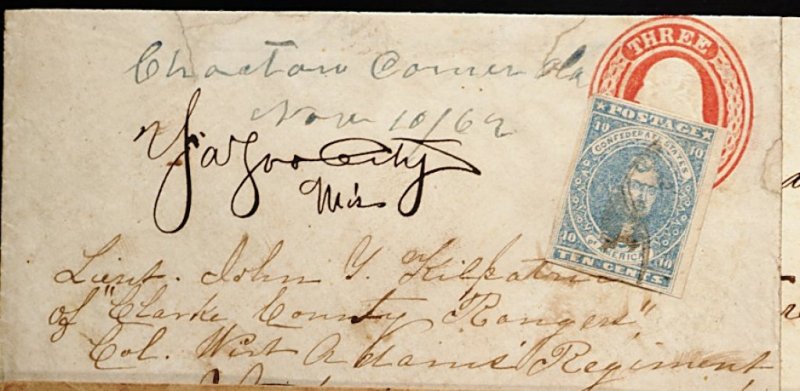 THREE
Choctaw Corner Ala
Nov 10/62
POSTAGE
10 10
CONFEDERATE STATES
OF AMERICA
10 10
TEN CENTS
Yazoo City
Miss
Lieut. John Y. Kilpatrick
of "Clarke County Rangers,"
Col. Wirt Adams' Regiment